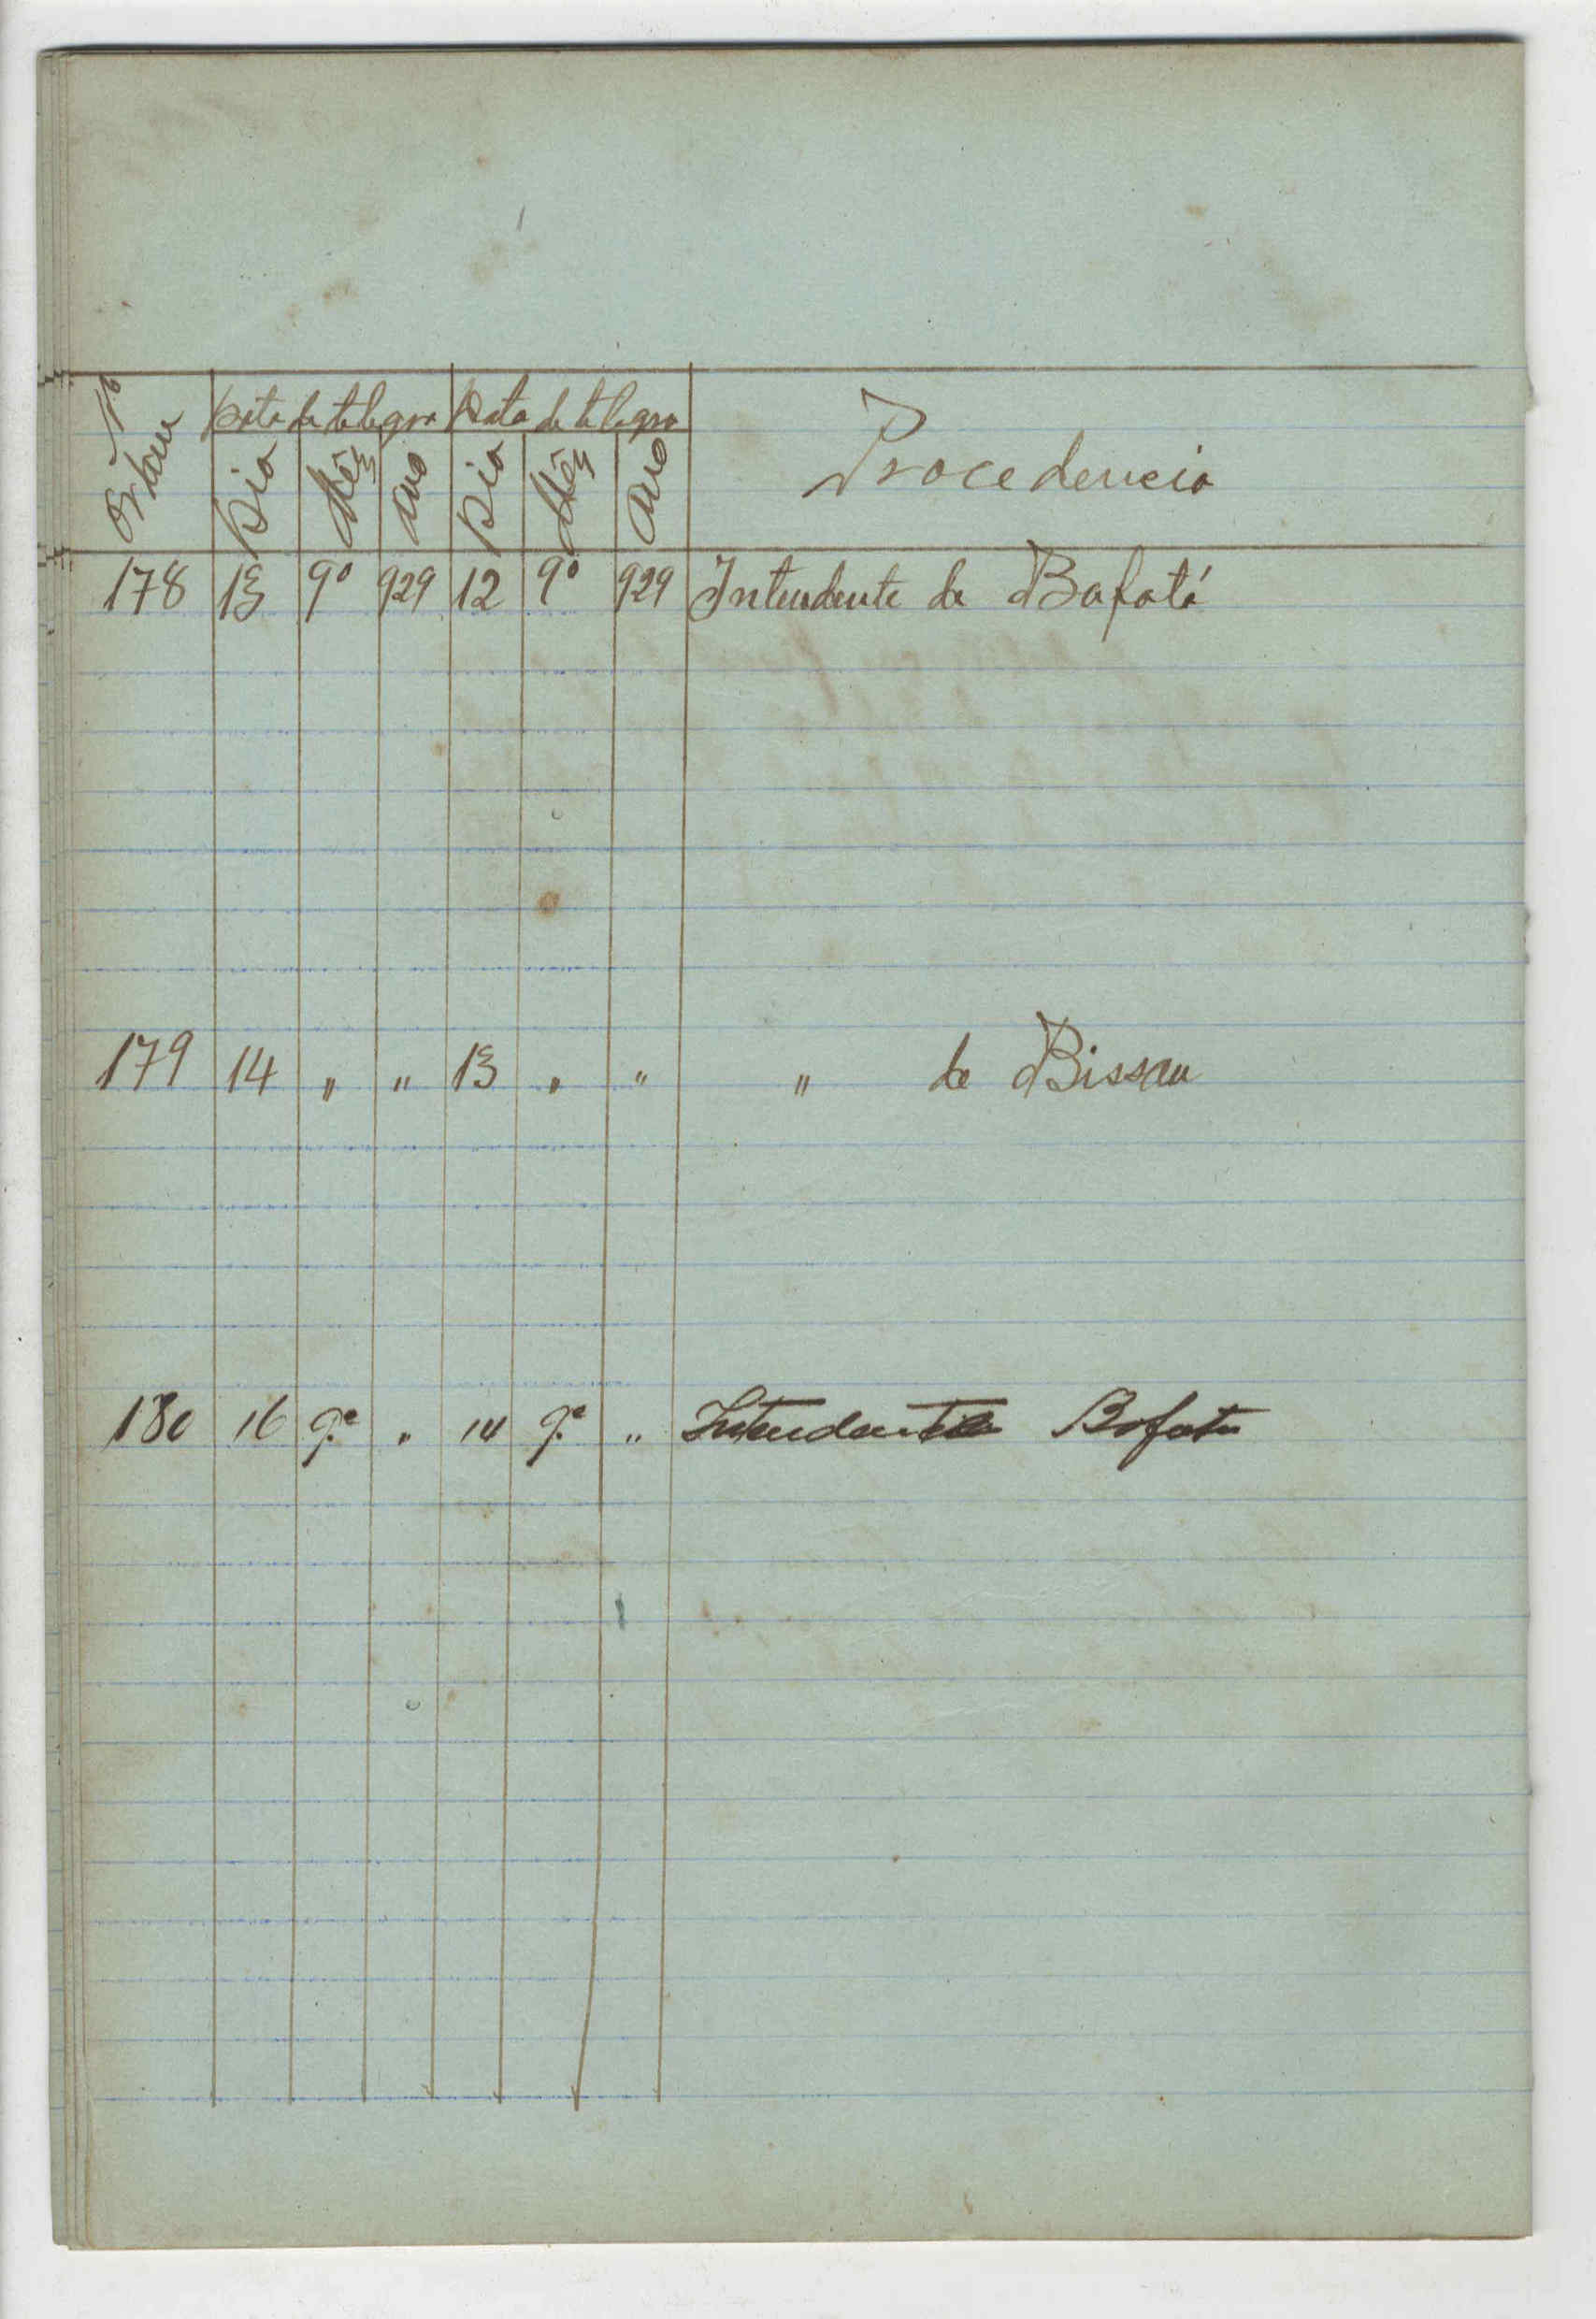 Nº Ordem Data de telegra Data de telegra Procedencia
Dia Mês Ano Dia Mês Ano
178 13 9º 929 12 9º 929 Intendente de Bafatá
179 14 " " 13 " " " de Bissau
180 16 9.º " 14 9.º " Intendente Bafata